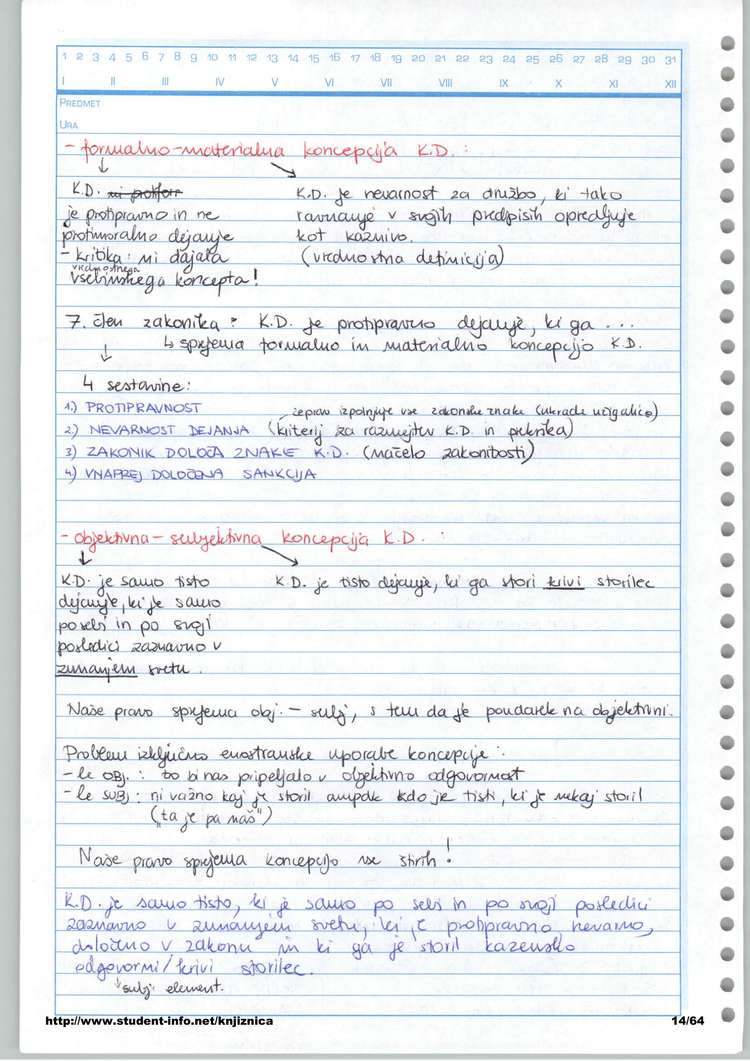 1 2 3 4 5 6 7 8 9 10 11 12 13 14 15 16 17 18 19 20 21 22 23 24 25 26 27 28 29 30 31
I II III IV V VI VII VIII IX X XI XII
PREDMET
URA
- formalno-materialna koncepcija K.D. :
K.D. ni protipr
je protipravno in ne
protimoralno dejanje
- kritika: ni dajala
vrednostnega
vsebinskega koncepta!
K.D. je nevarnost za družbo, ki tako
ravnanje v svojih predpisih opredljuje
kot kaznivo.
(vrednostna definicija)
7. člen zakonika: K.D. je protipravno dejanje, ki ga ...
↳ sprejema formalno in materialno koncepcijo K.D.
4 sestavine:
1.) PROTIPRAVNOST
čeprav izpolnjuje vse zakonske znake (ukrade vžigalico)
2.) NEVARNOST DEJANJA (kriterij za razmejitev K.D. in prekrška)
3) ZAKONIK DOLOČA ZNAKE K.D. (načelo zakonitosti)
4) VNAPREJ DOLOČENA SANKCIJA
- objektivna - subjektivna koncepcija K.D. :
K.D. je samo tisto
dejanje, ki je samo
po sebi in po svoji
posledici zaznavno v
zunanjem svetu.
K.D. je tisto dejanje, ki ga stori krivi storilec
Naše pravo sprejema obj. - subj, s tem da je poudarek na objektivni.
Problem izključno enostranske uporabe koncepcije :
- le OBJ. : to bi nas pripeljalo v objektivno odgovornost
- le SUBJ : ni važno kaj je storil ampak kdo je tisti, ki je nekaj storil
("ta je pa naš")
Naše pravo sprejema koncepcijo vse štirih !
K.D. je samo tisto, ki je samo po sebi in po svoji posledici
zaznavno v zunanjem svetu, ki je protipravno, nevarno,
določeno v zakonu in ki ga je storil kazensko
odgovorni/krivi storilec.
subj. element.
http://www.student-info.net/knjiznica 14/64